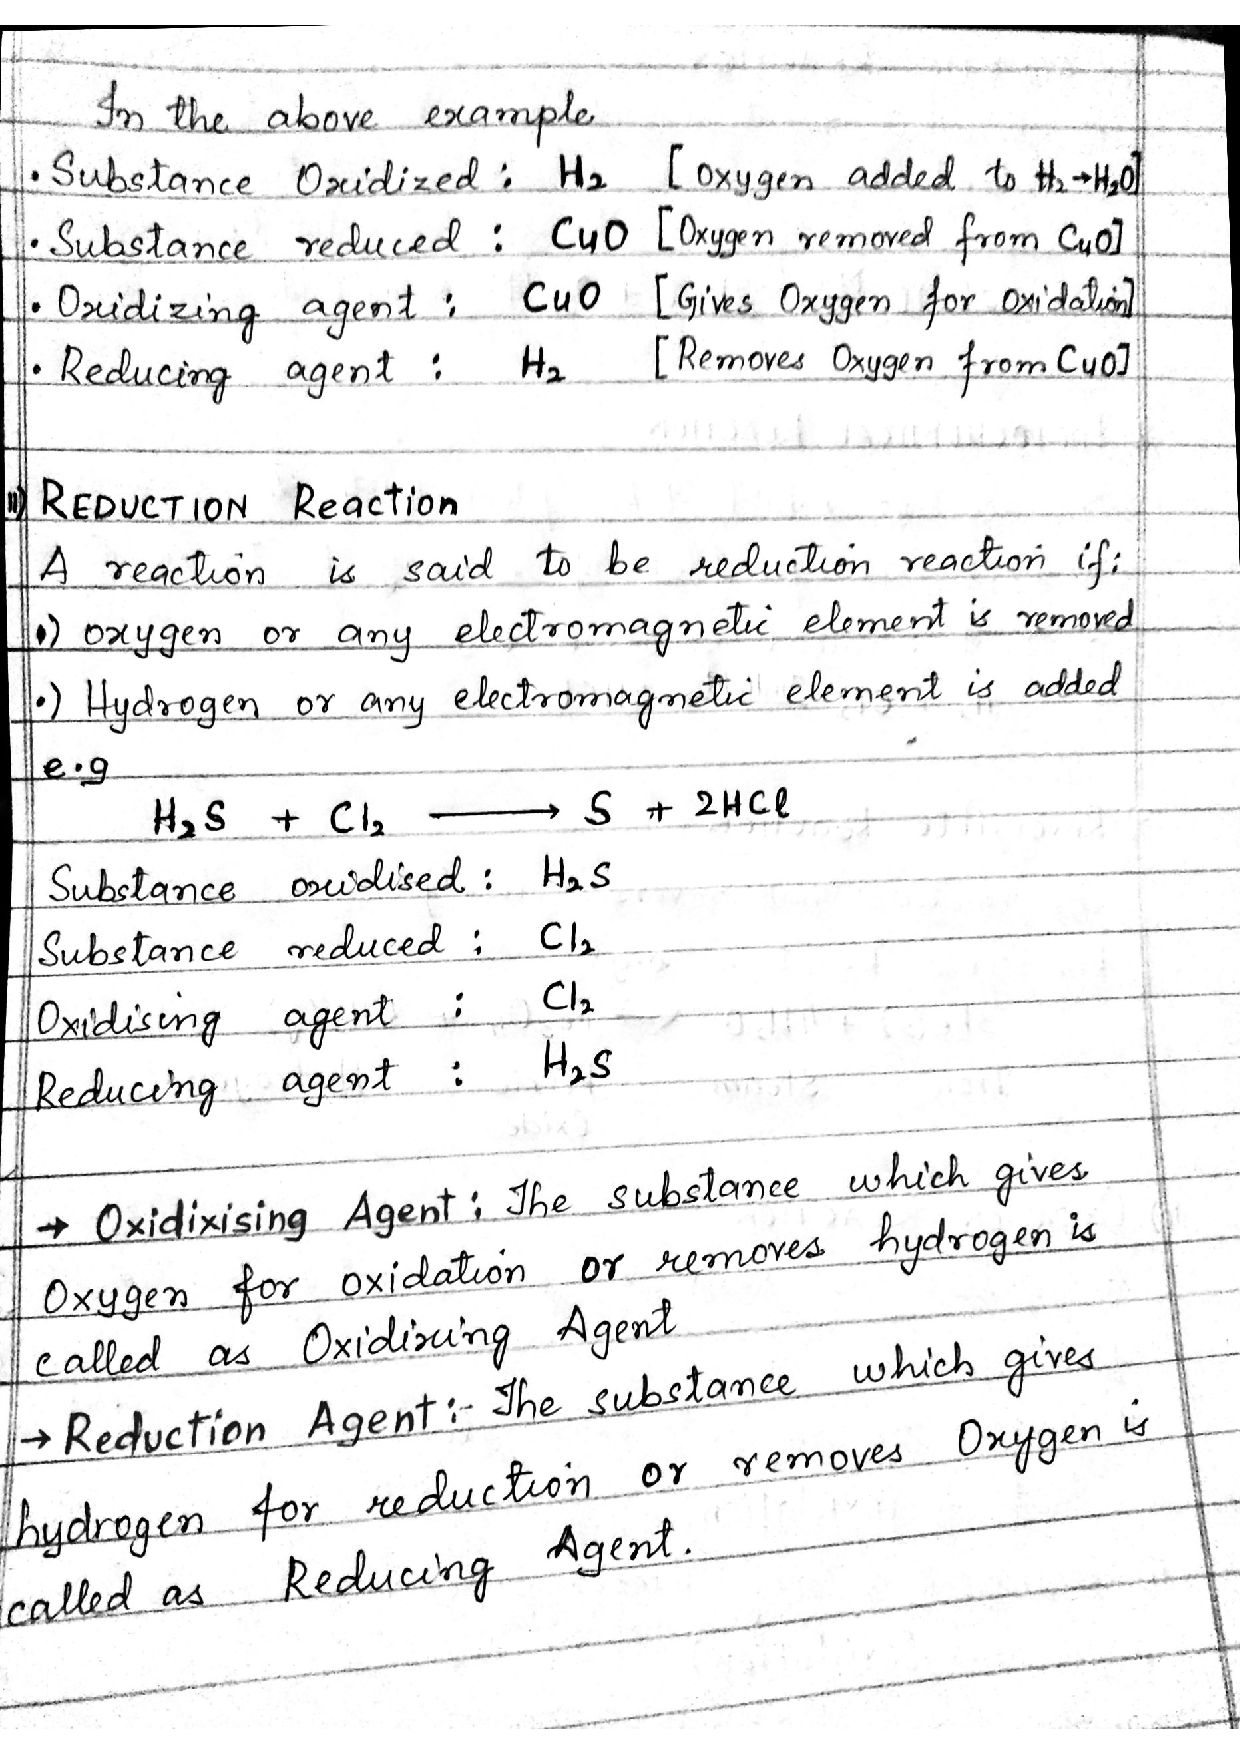 In the above example
• Substance Oxidized : H₂ [Oxygen added to H₂→H₂O]
• Substance reduced : CuO [Oxygen removed from CuO]
• Oxidizing agent : CuO [Gives Oxygen for oxidation]
• Reducing agent : H₂ [Removes Oxygen from CuO]
ii) REDUCTION Reaction
A reaction is said to be reduction reaction if:
•) oxygen or any electromagnetic element is removed
•) Hydrogen or any electromagnetic element is added
e.g
H₂S + Cl₂ ⟶ S + 2HCl
Substance oxidised : H₂S
Substance reduced : Cl₂
Oxidising agent : Cl₂
Reducing agent : H₂S
→ Oxidixising Agent : The substance which gives
Oxygen for oxidation or removes hydrogen is
called as Oxidixing Agent
→ Reduction Agent :- The substance which gives
hydrogen for reduction or removes Oxygen is
called as Reducing Agent.